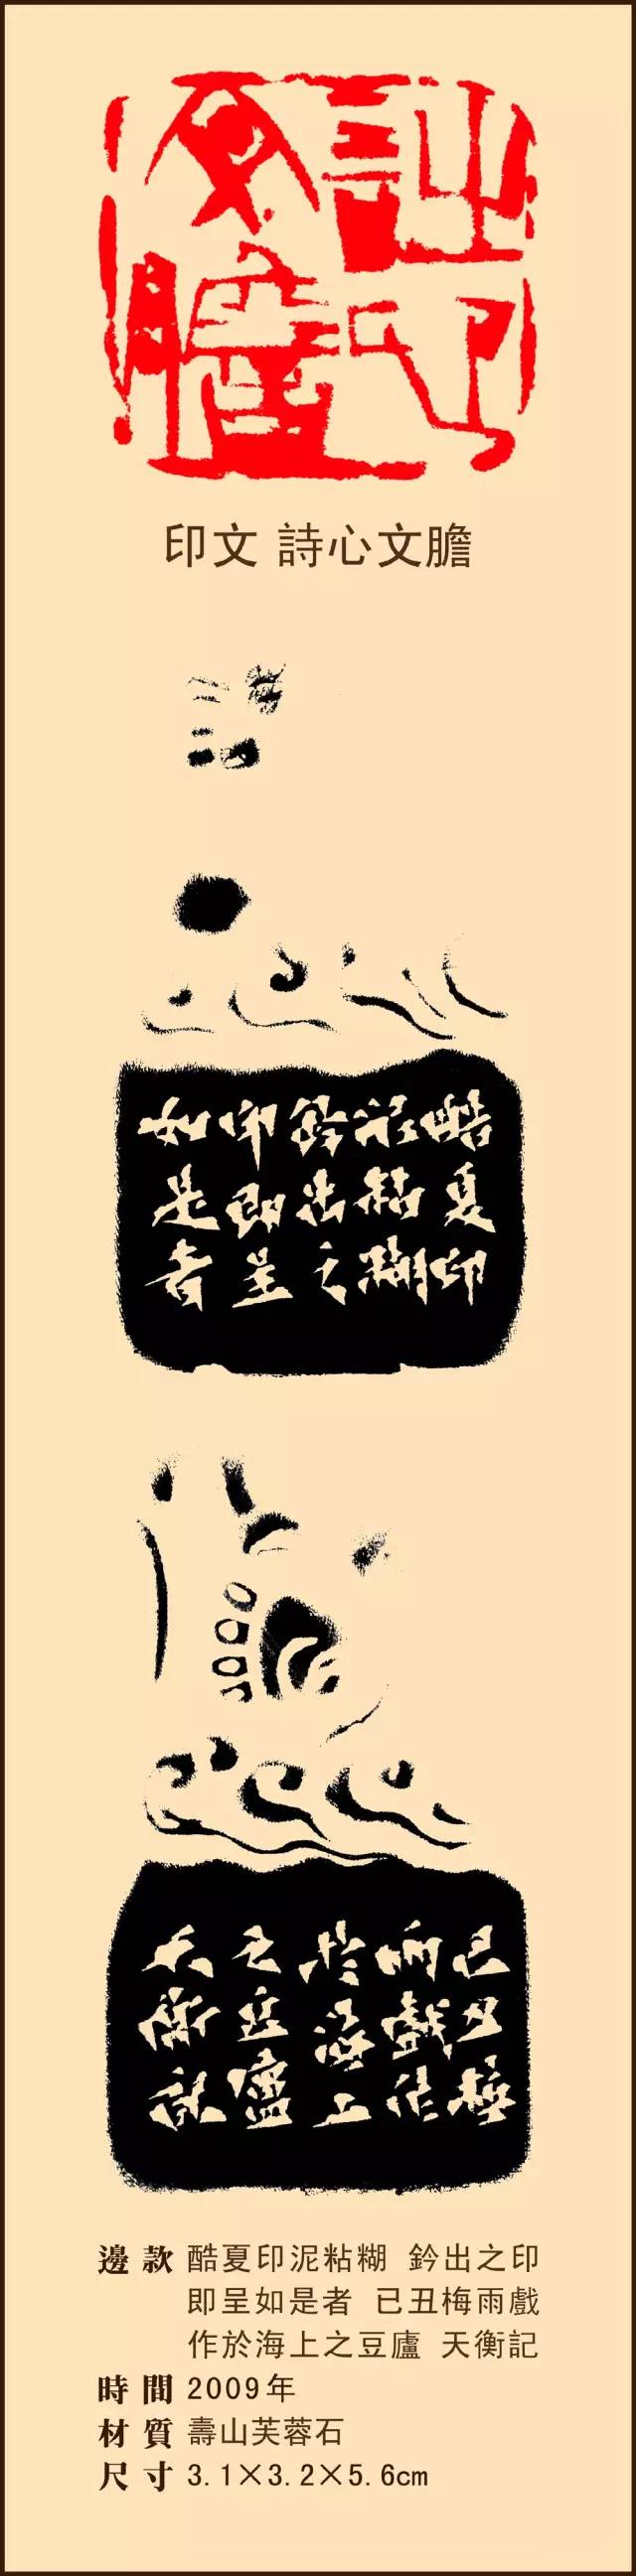 詩心文膽
印文 詩心文膽
酷夏印
泥粘糊
鈐出之
印即呈
如是者
己丑梅
雨戲作
於海上
之豆廬
天衡記
邊款 酷夏印泥粘糊 鈐出之印
即呈如是者 已丑梅雨戲
作於海上之豆廬 天衡記
時間 2009年
材質 壽山芙蓉石
尺寸 3.1×3.2×5.6cm